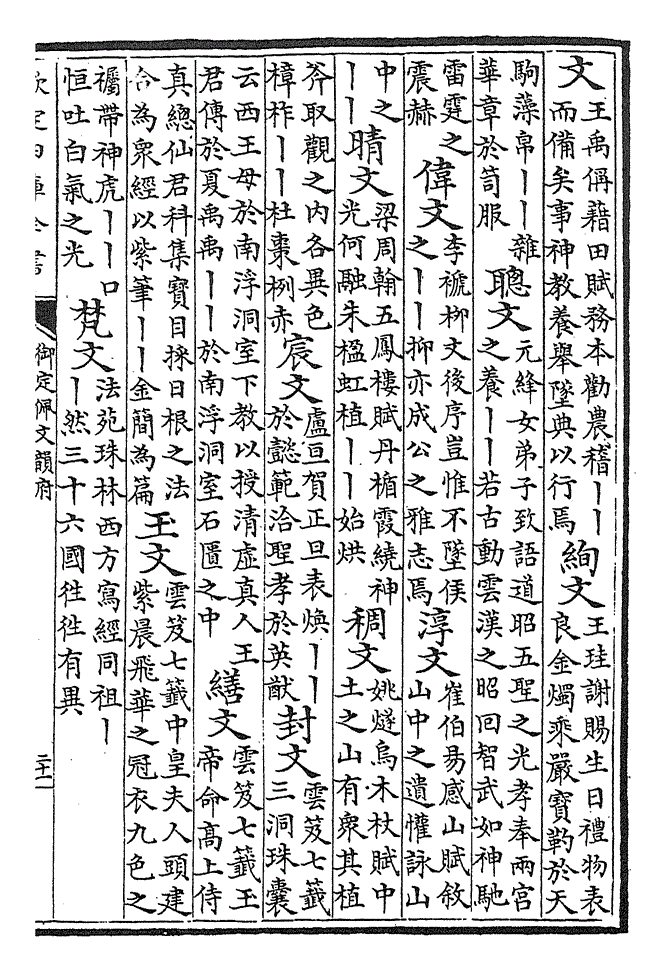 文王禹偁藉田賦務本勸農稽丨丨
而備矣事神教養舉墜典以行焉
絢文王珪謝賜生日禮物表
良金燭乘嚴寶勒於天
駒藻帛丨丨雜
華章於笥服
聰文元絳女弟子致語道昭五聖之光孝奉兩宮
之養丨丨若古動雲漢之昭回智武如神馳
雷霆之
震赫
偉文李褫柳文後序豈惟不墜侯
之丨丨抑亦成公之雅志焉
淳文崔伯易感山賦敘
山中之遺懽詠山
中之
丨丨
晴文梁周翰五鳳樓賦丹楯霞繞神
光何融朱楹虹植丨丨始烘
稠文姚燧烏木杖賦中
土之山有衆其植
斧取觀之内各異色
樟柞丨丨杜棗栵赤
宸文盧亘賀正旦表煥丨丨
於懿範洽聖孝於英猷
封文雲笈七籤
三洞珠囊
云西王母於南浮洞室下教以授清虛真人王
君傳於夏禹禹丨丨於南浮洞室石匱之中
繕文雲笈七籤王
帝命高上侍
真總仙君科集寶目採日根之法
合為衆經以紫筆丨丨金簡為篇
玉文雲笈七籤中皇夫人頭建
紫晨飛華之冠衣九色之
襡帶神虎丨丨口
恒吐白氣之光
梵文法苑珠林西方寫經同祖丨
丨然三十六國徃徃有異
欽定四庫全書
御定佩文韻府
二十一